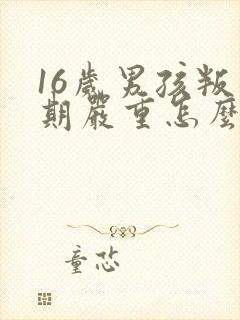 16歲男孩叛
期嚴重怎麼
童恐